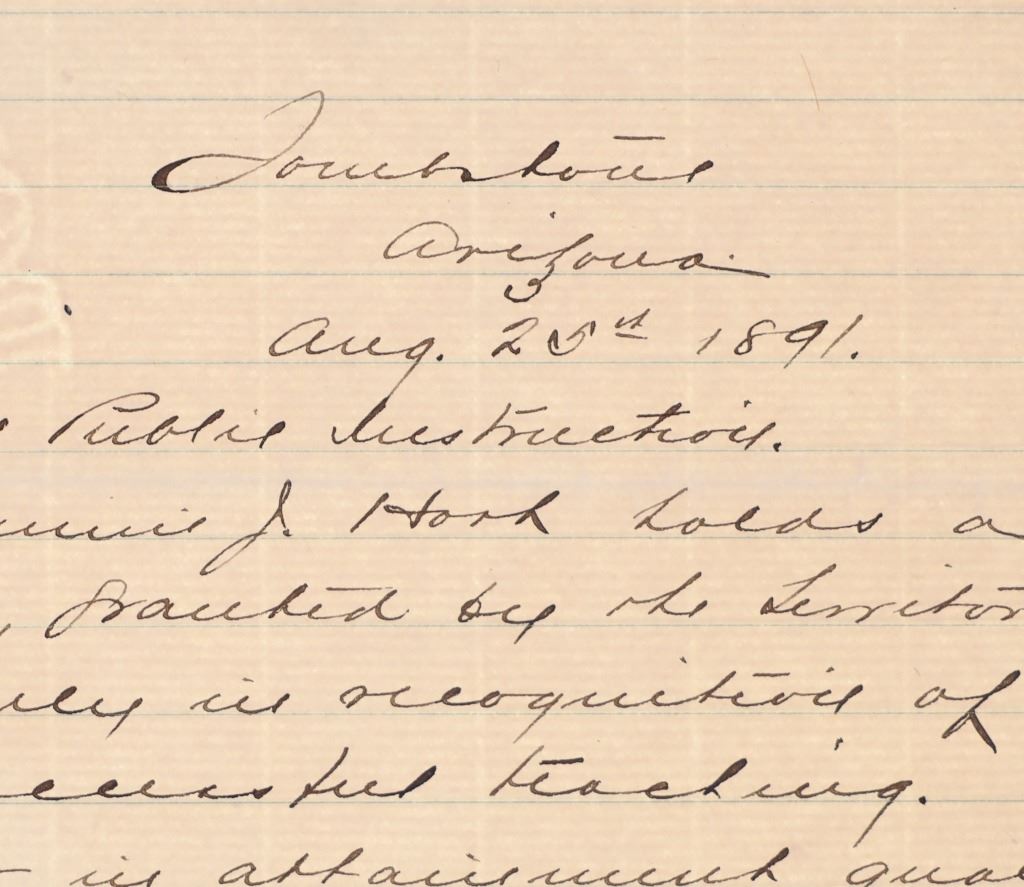 Tombstone
Arizona.
Aug. 25th 1891.
Public Instruction.
J. Hork holds a
, granted by the Territor
in recognition of
ccessful teaching.
in attainment qua